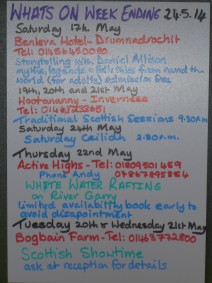 WHATS ON WEEK ENDING 24.5.14
Saturday 17th May
Benleva Hotel - Drumnadrochit
Tel: 01456450080
Storytelling with Daniel Allison
myths, legends & folk tales from round the
world (for adults) admission free
19th, 20th and 21st May
Hootananny - Inverness
Tel: 01463233651
Traditional Scottish Sessions 9.30pm
Saturday 24th May
Saturday Ceilidh 2.30p.m.
Thursday 22nd May
Active Highs - Tel: 01809501459
Phone Andy 07867898884
WHITE WATER RAFTING
on River Garry
limited availability book early to
avoid disapointment
Tuesday 20th & Wednesday 21st May
Bogbain Farm - Tel: 01463772800
Scottish Showtime
ask at reception for details